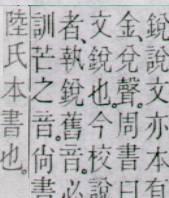 銳、說文亦本有
金、兌聲。周書曰
文銳也。今校說
者、執銳。舊音。必
訓芒之音。尙書
陸氏本書也。